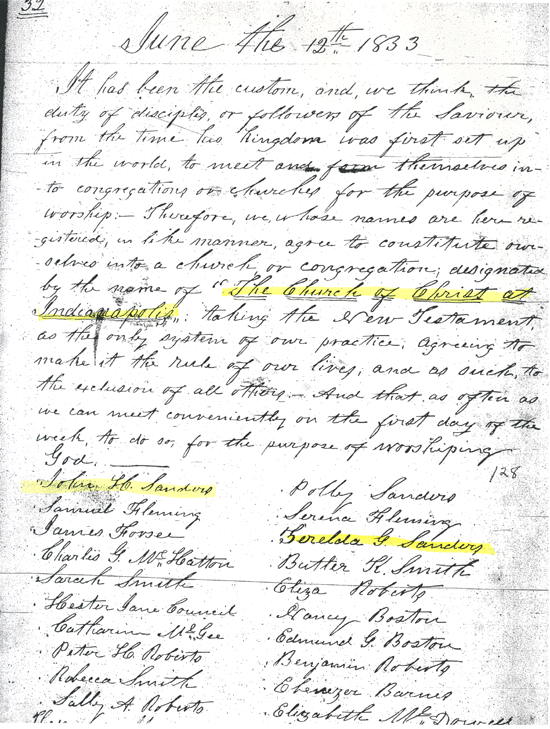 32
June the 12th 1833
It has been the custom, and, we think, the
duty of disciples, or followers of the Saviour,
from the time his kingdom was first set up
in the world, to meet and form themselves in-
-to congregations or churches for the purpose of
worship:- Therefore, we, whose names are here re-
-gistered, in like manner, agree to constitute our-
-selves into a church or congregation; designated
by the name of "The Church of Christ at
Indianapolis": taking the New Testament,
as the only system of our practice; agreeing to
make it the rule of our lives, and as such, to
the exclusion of all others.- And that as often as
we can meet conveniently on the first day of the
week, to do so, for the purpose of worshiping
God.
128
John H. Sanders
Samuel Fleming
James Forsee
Charlis G. McHatton
Sarah Smith
Hester Jane Council
Catharine McGee
Peter H. Roberts
Rebecca Smith
Sally A. Roberts
Polly Sanders
Serena Fleming
Zerelda G. Sanders
Butler K. Smith
Eliza Roberts
Nancy Boston
Edmund G. Boston
Benjamin Roberts
Ebenezer Barnes
Elizabeth McDowell